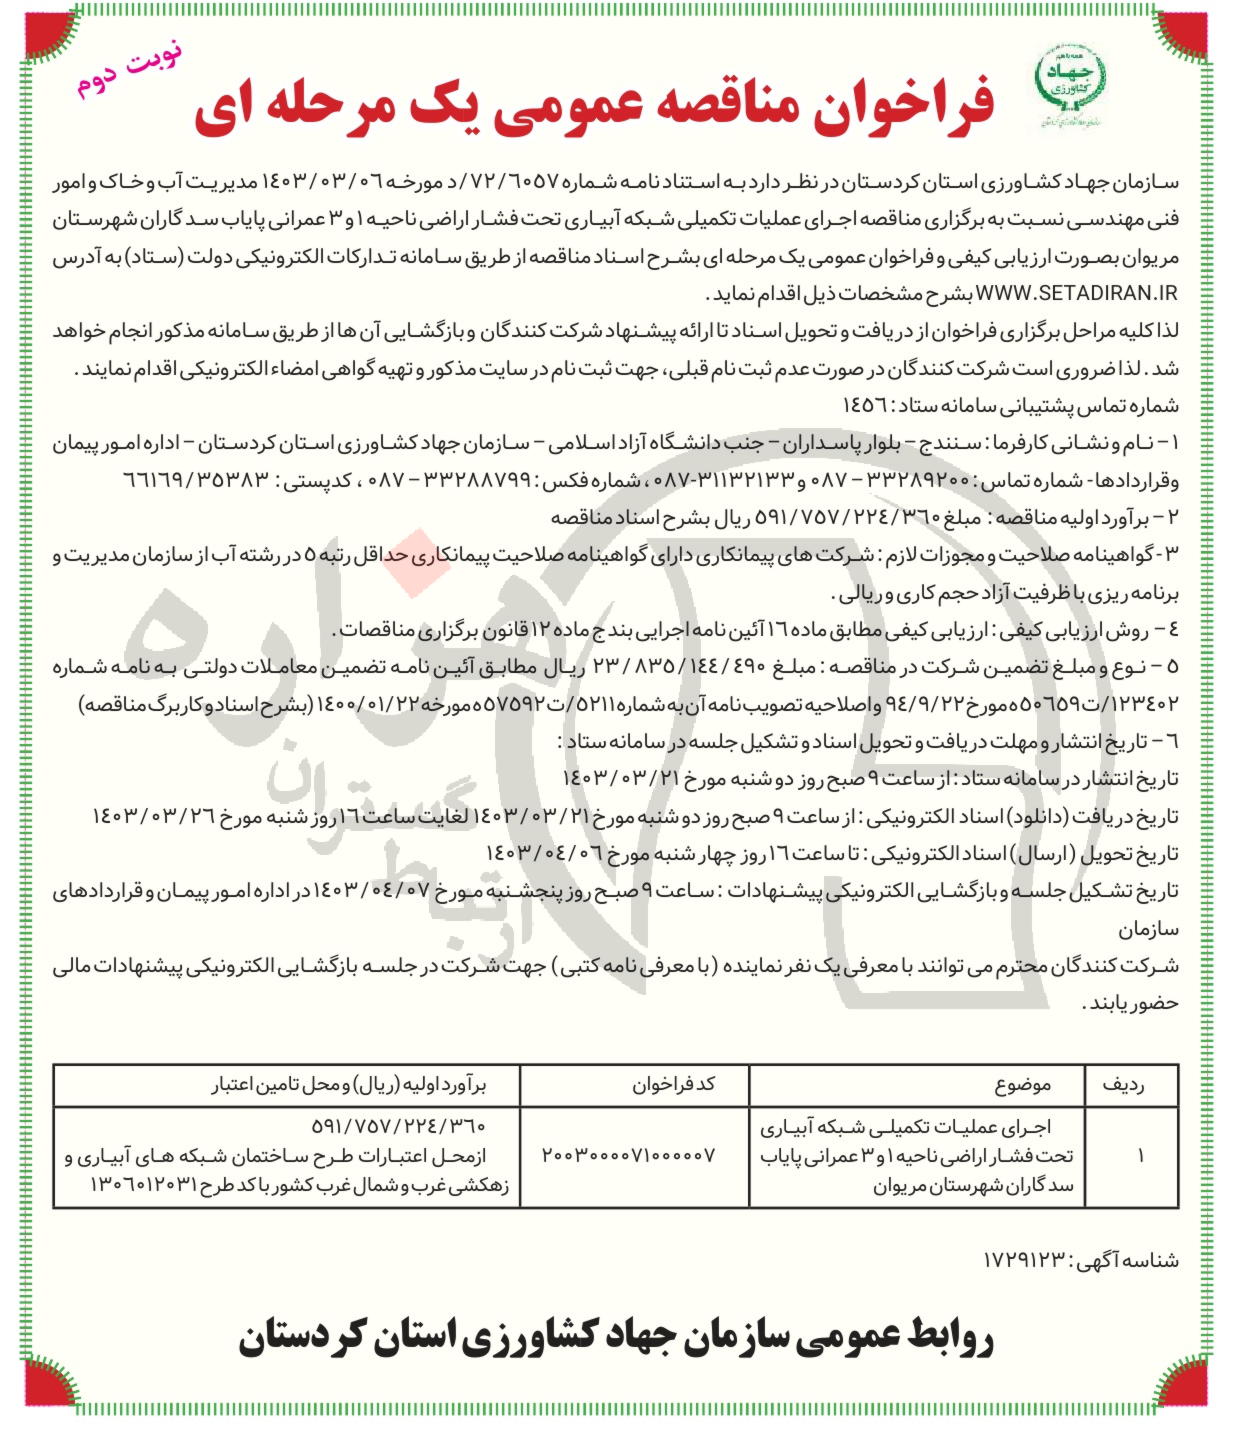 نوبت دوم
همه با هم
جهاد
کشاورزی
فراخوان مناقصه عمومی یک مرحله ای
سازمان جهاد کشاورزی استان کردستان در نظر دارد به استناد نامه شماره ۷۲/۶۰۵۷/د مورخه ۱۴۰۳/۰۳/۰۶ مدیریت آب و خاک و امور
فنی مهندسی نسبت به برگزاری مناقصه اجرای عملیات تکمیلی شبکه آبیاری تحت فشار اراضی ناحیه ۱و۳ عمرانی پایاب سد گاران شهرستان
مریوان بصورت ارزیابی کیفی و فراخوان عمومی یک مرحله ای بشرح اسناد مناقصه از طریق سامانه تدارکات الکترونیکی دولت (ستاد) به آدرس
WWW.SETADIRAN.IR بشرح مشخصات ذیل اقدام نماید.
لذا کلیه مراحل برگزاری فراخوان از دریافت و تحویل اسناد تا ارائه پیشنهاد شرکت کنندگان و بازگشایی آن ها از طریق سامانه مذکور انجام خواهد
شد. لذا ضروری است شرکت کنندگان در صورت عدم ثبت نام قبلی، جهت ثبت نام در سایت مذکور و تهیه گواهی امضاء الکترونیکی اقدام نمایند.
شماره تماس پشتیبانی سامانه ستاد: ۱۴۵۶
۱– نام و نشانی کارفرما: سنندج – بلوار پاسداران – جنب دانشگاه آزاد اسلامی – سازمان جهاد کشاورزی استان کردستان – اداره امور پیمان
وقراردادها- شماره تماس: ۳۳۲۸۹۲۰۰ – ۰۸۷ و ۳۱۱۳۲۱۳۳-۰۸۷، شماره فکس: ۳۳۲۸۸۷۹۹ – ۰۸۷ ، کدپستی: ۶۶۱۶۹/۳۵۳۸۳
۲– برآورد اولیه مناقصه: مبلغ ۵۹۱/۷۵۷/۲۲۴/۳۶۰ ریال بشرح اسناد مناقصه
۳-گواهینامه صلاحیت و مجوزات لازم: شرکت های پیمانکاری دارای گواهینامه صلاحیت پیمانکاری حداقل رتبه ۵ در رشته آب از سازمان مدیریت و
برنامه ریزی با ظرفیت آزاد حجم کاری و ریالی.
۴– روش ارزیابی کیفی: ارزیابی کیفی مطابق ماده ۱۶ آئین نامه اجرایی بند ج ماده ۱۲ قانون برگزاری مناقصات.
۵– نوع و مبلغ تضمین شرکت در مناقصه: مبلغ ۲۳/۸۳۵/۱۴۴/۴۹۰ ریال مطابق آئین نامه تضمین معاملات دولتی به نامه شماره
۱۲۳۴۰۲/ت۵۰۶۵۹ه مورخ ۹۴/۹/۲۲ و اصلاحیه تصویب نامه آن به شماره ۵۲۱۱/ت۵۷۵۹۲ه مورخه ۱۴۰۰/۰۱/۲۲ (بشرح اسناد و کاربرگ مناقصه)
۶– تاریخ انتشار و مهلت دریافت و تحویل اسناد و تشکیل جلسه در سامانه ستاد:
تاریخ انتشار در سامانه ستاد: از ساعت ۹ صبح روز دوشنبه مورخ ۱۴۰۳/۰۳/۲۱
تاریخ دریافت (دانلود) اسناد الکترونیکی: از ساعت ۹ صبح روز دوشنبه مورخ ۱۴۰۳/۰۳/۲۱ لغایت ساعت ۱۶ روز شنبه مورخ ۱۴۰۳/۰۳/۲۶
تاریخ تحویل (ارسال) اسناد الکترونیکی: تا ساعت ۱۶ روز چهارشنبه مورخ ۱۴۰۳/۰۴/۰۶
تاریخ تشکیل جلسه و بازگشایی الکترونیکی پیشنهادات: ساعت ۹ صبح روز پنجشنبه مورخ ۱۴۰۳/۰۴/۰۷ در اداره امور پیمان و قراردادهای
سازمان
شرکت کنندگان محترم می توانند با معرفی یک نفر نماینده (با معرفی نامه کتبی) جهت شرکت در جلسه بازگشایی الکترونیکی پیشنهادات مالی
حضور یابند.
هزاره
گستران
ارتباط
ردیف موضوع کد فراخوان برآورد اولیه (ریال) و محل تامین اعتبار
۱
اجرای عملیات تکمیلی شبکه آبیاری
تحت فشار اراضی ناحیه ۱و۳ عمرانی پایاب
سد گاران شهرستان مریوان
۲۰۰۳۰۰۰۰۷۱۰۰۰۰۰۷
۵۹۱/۷۵۷/۲۲۴/۳۶۰
از محل اعتبارات طرح ساختمان شبکه های آبیاری و
زهکشی غرب و شمال غرب کشور با کد طرح ۱۳۰۶۰۱۲۰۳۱
شناسه آگهی: ۱۷۲۹۱۲۳
روابط عمومی سازمان جهاد کشاورزی استان کردستان